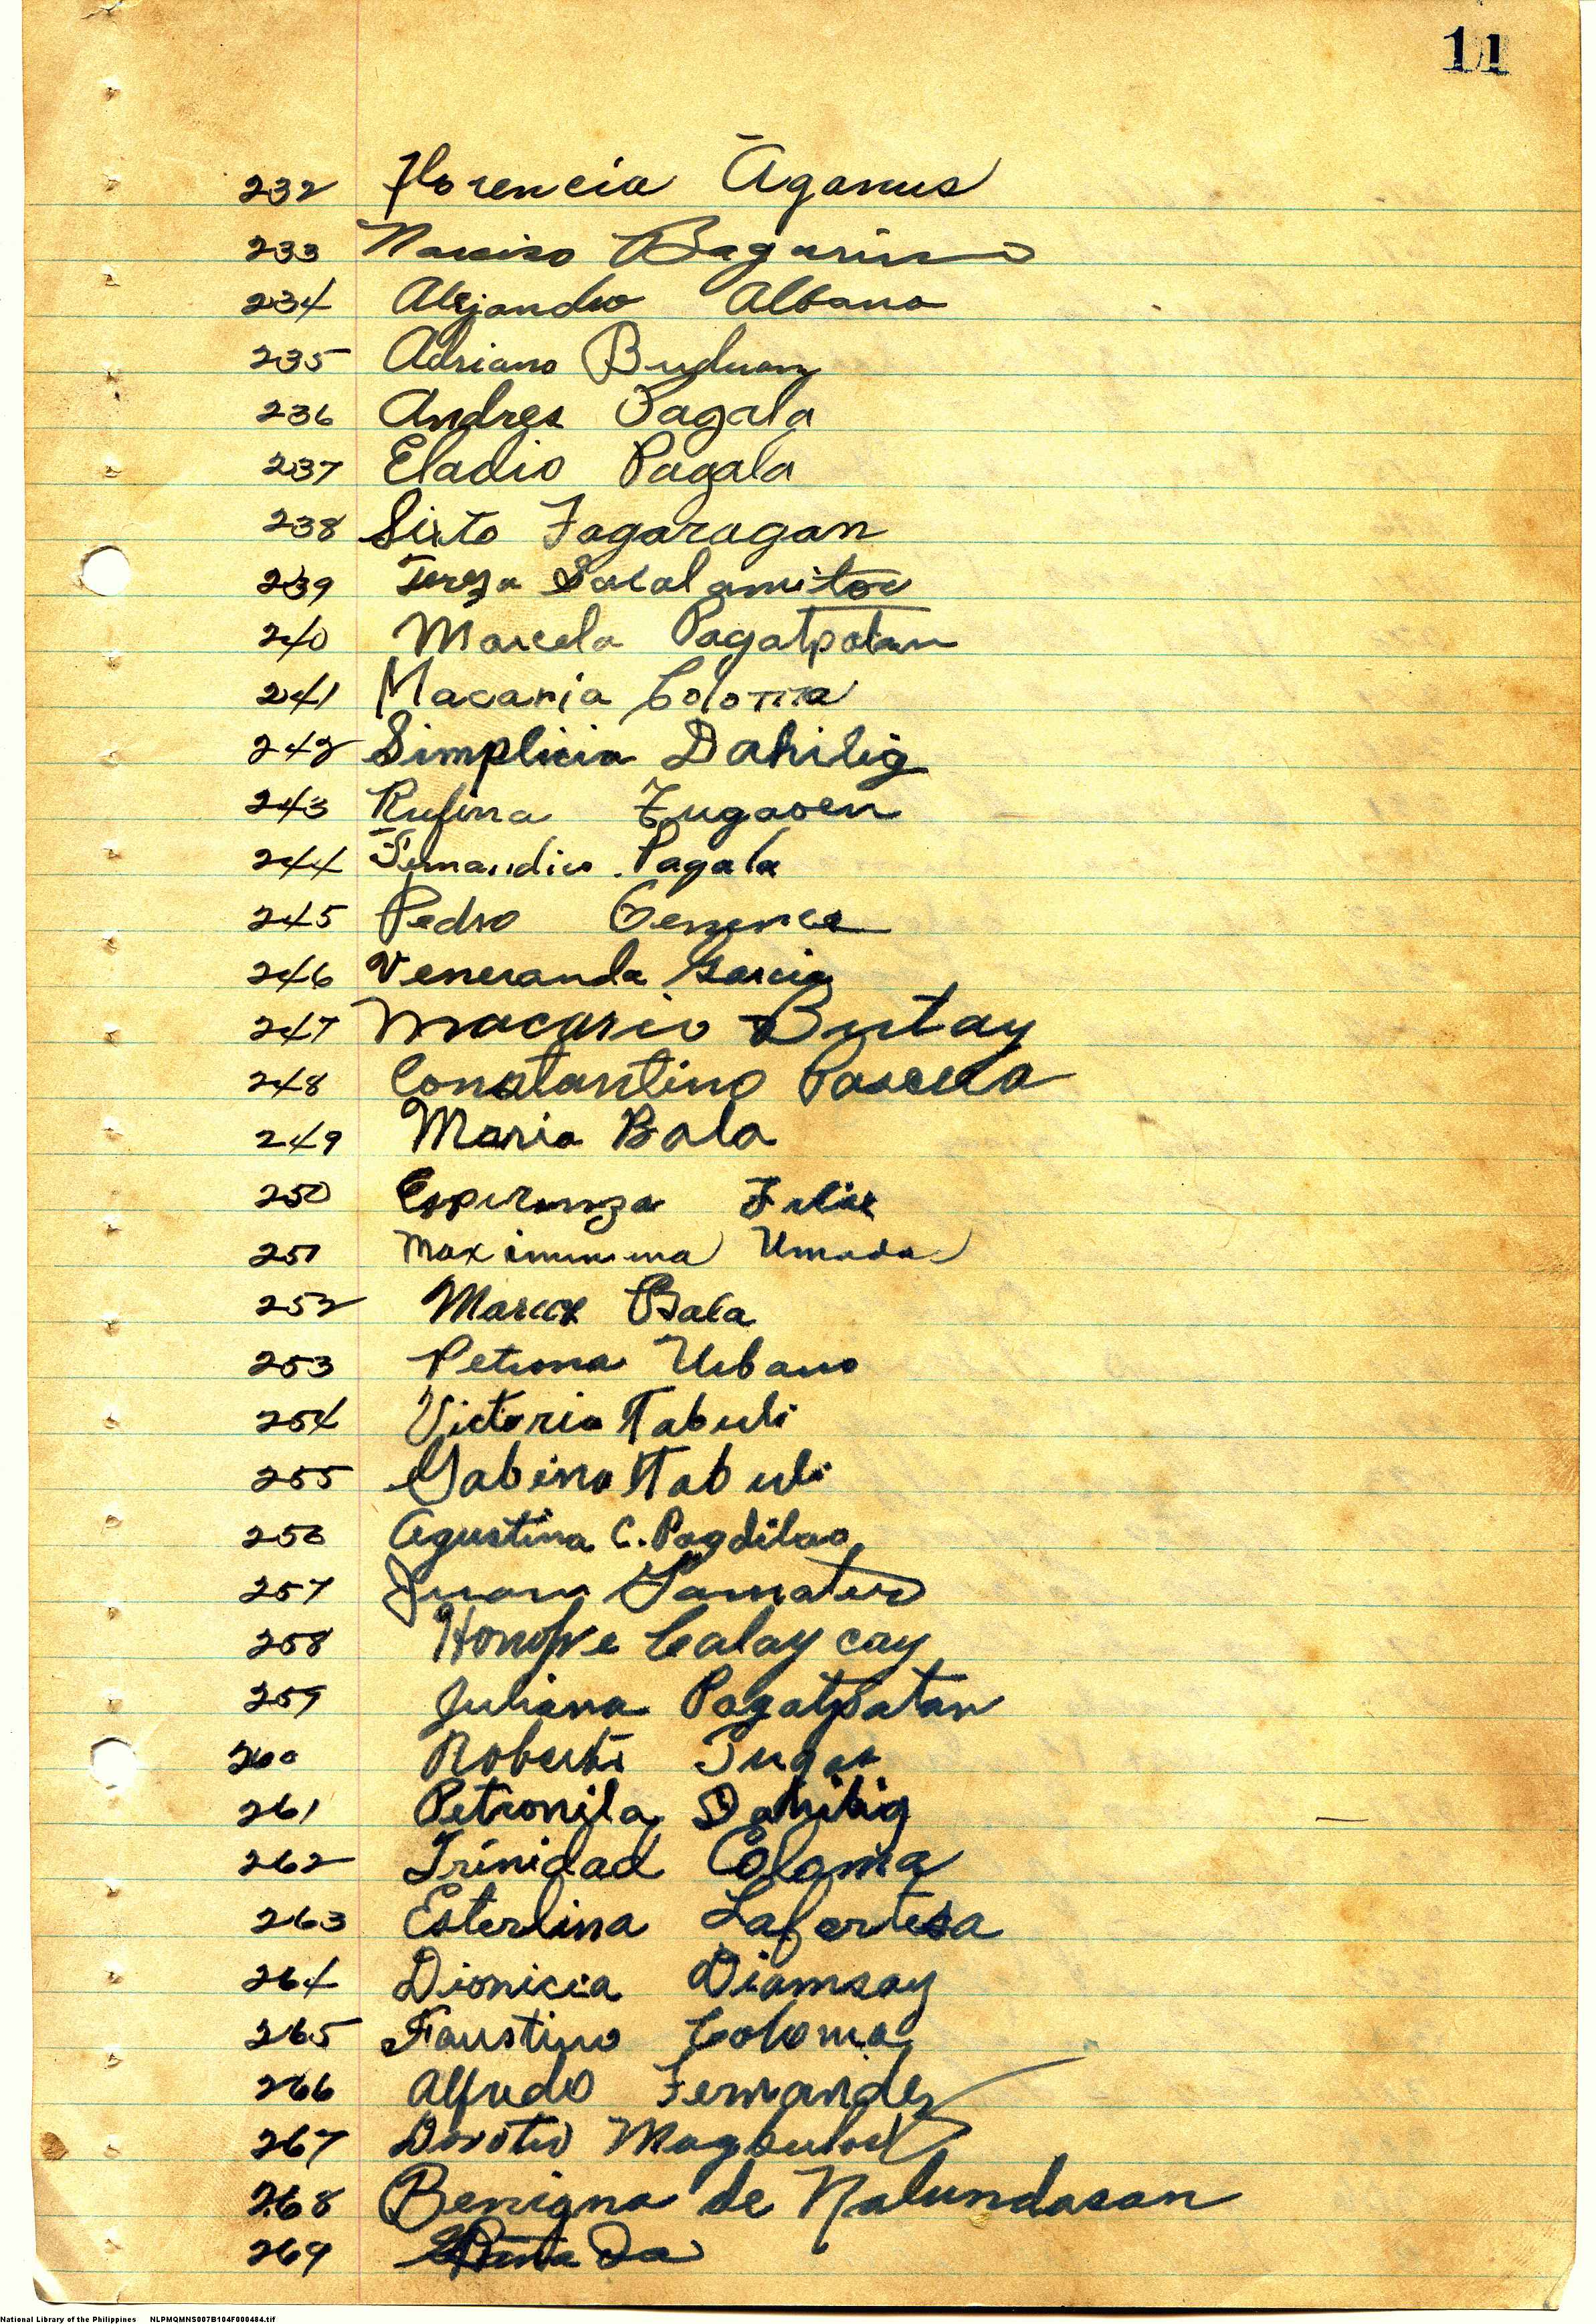 11
232 Florencia Aganus
233 Narciso Bagarino
234 Alejandro Albano
235 Adriano Buduan
236 Andres Pagala
237 Eladio Pagala
238 Sixto Fagaragan
239 Teresa Sacalamitao
240 Marcela Pagatpatan
241 Macaria Coloma
242 Simplicia Dahilig
243 Rufina Tugaoen
244 Pagala
245 Pedro
246 Veneranda Garcia
247 Macario Butay
248 Constantino Pascua
249 Maria Bala
250 Esperanza Felix
251 Maximinina Umada
252 Bala
253 Petrona Urbano
254 Victoria Tabuli
255 Gabino Tabuli
256 Agustina C. Pagdilao
257 Juan
258 Honofre Calaycay
259 Juliana Pagatpatan
260
261 Petronila Dahilig
262 Trinidad Coloma
263 Esterlina Lafortesa
264 Dionicia Diamsay
265 Faustino Coloma
266 Alfredo Fernandez
267
268 Benigna de Nalundasan
269
National Library of the Philippines NLPMQMNS007B104F000484.tif